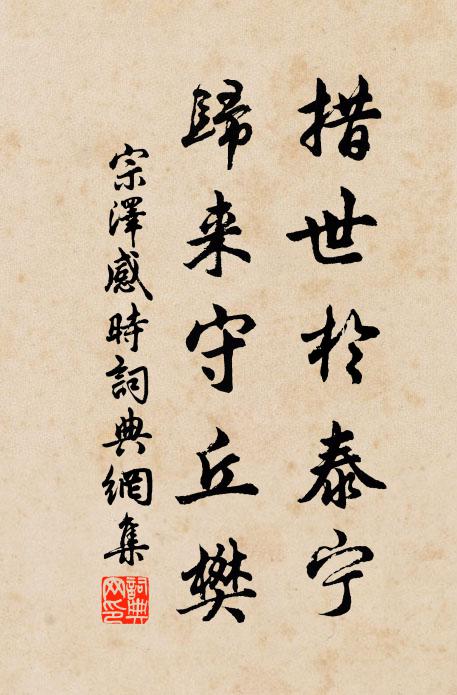 措世於泰宁
歸来守丘樊
宗澤感時詞典網集
詞典网印